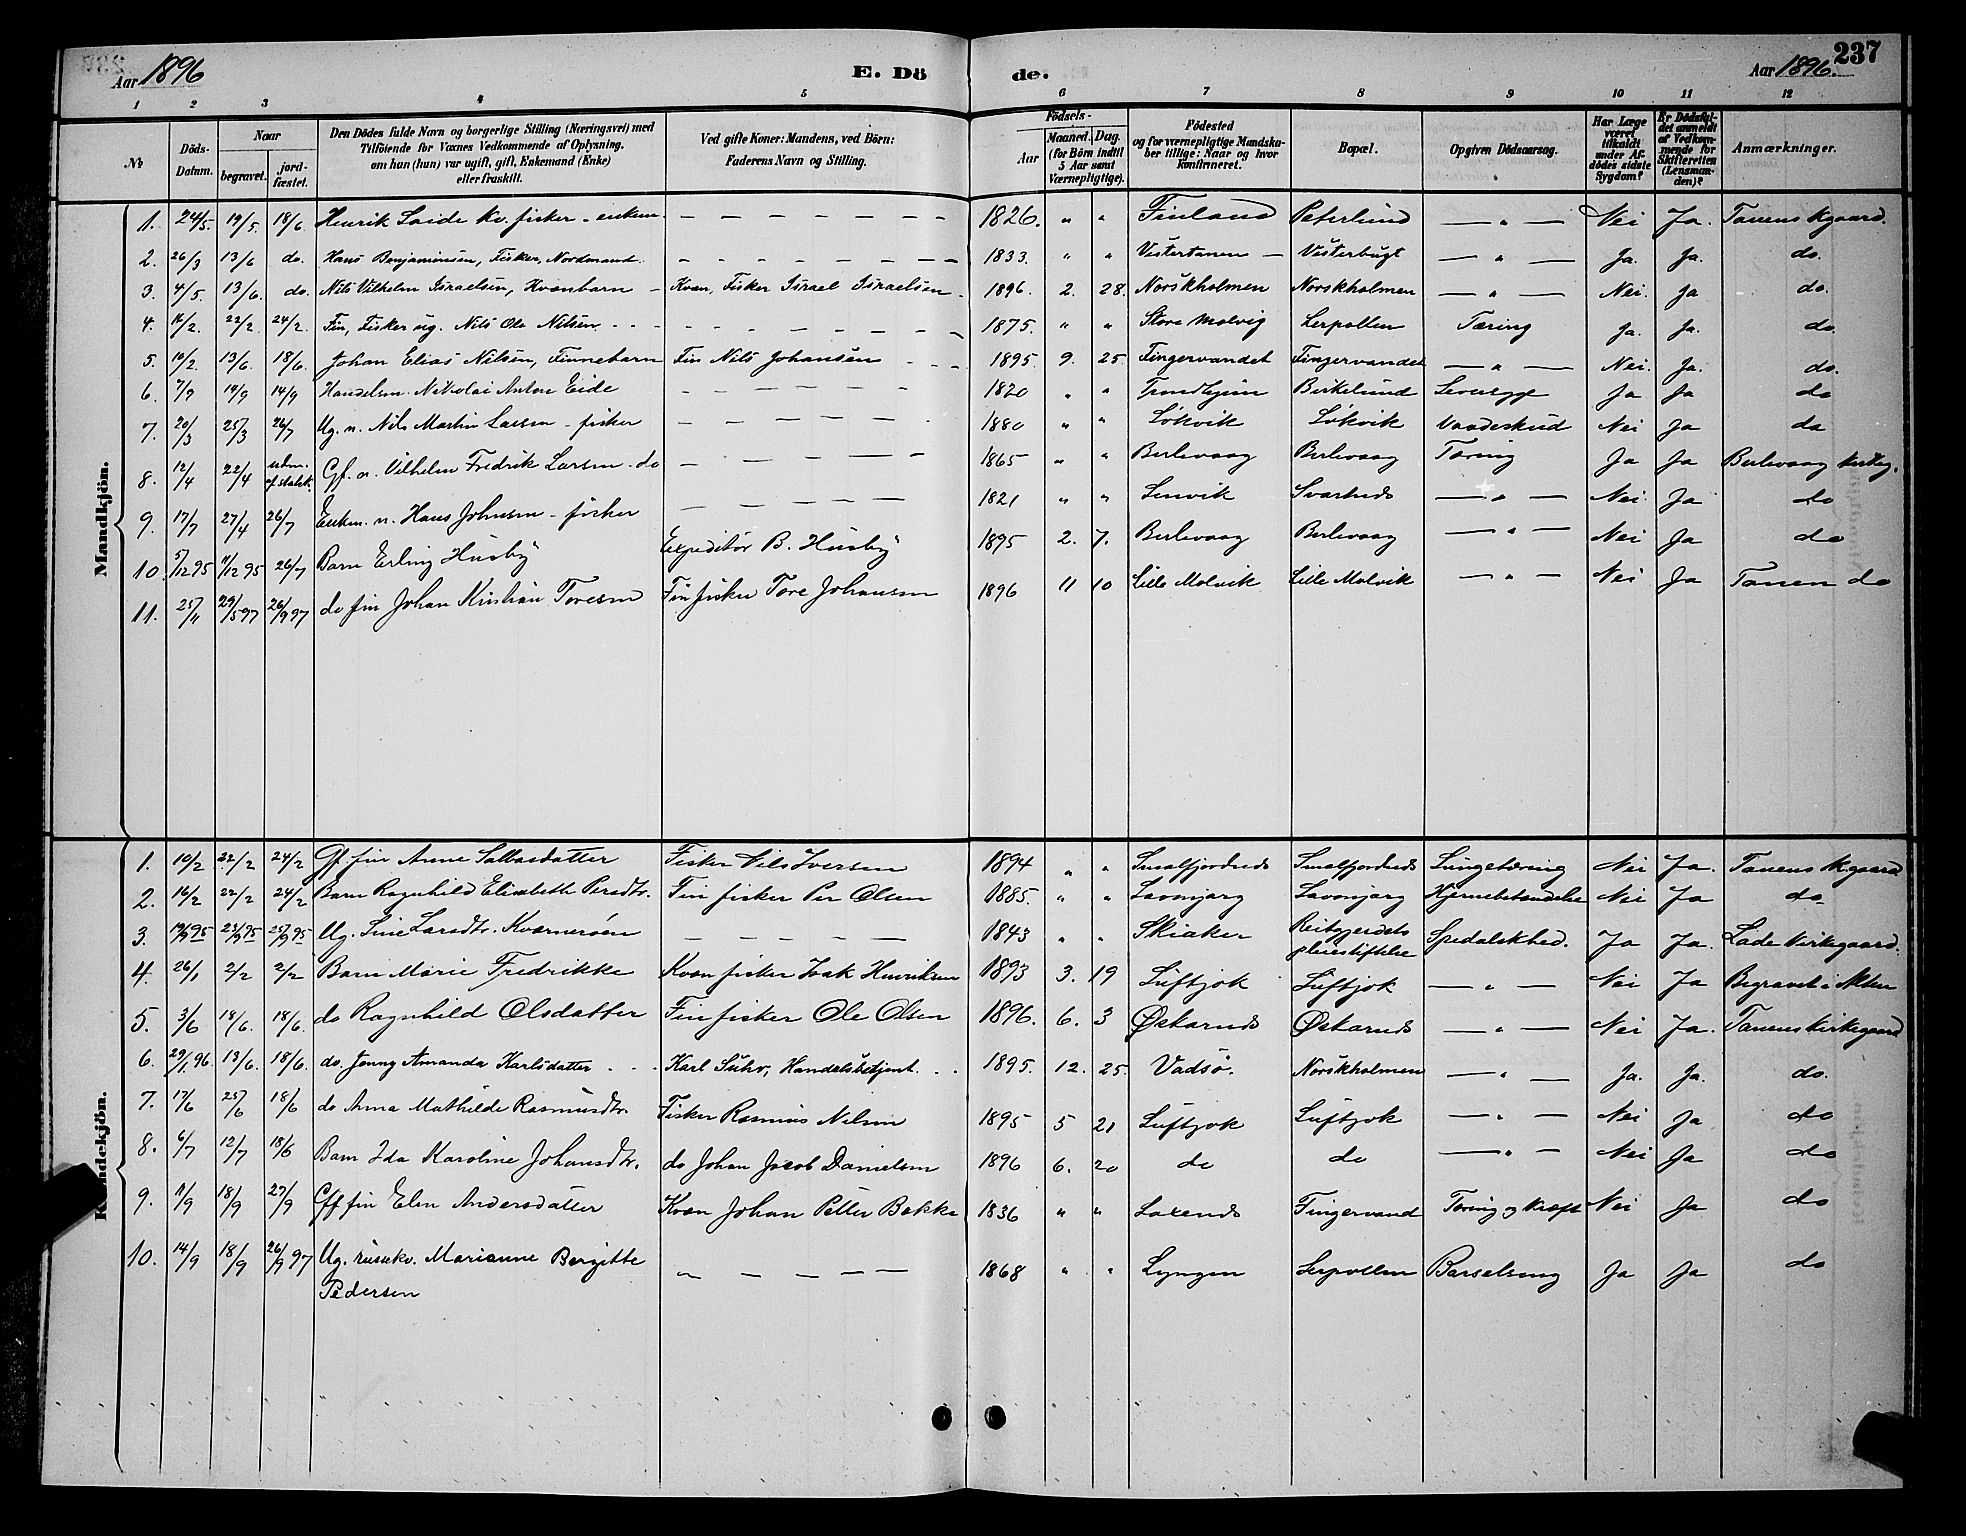 Aar 1896 E. Dö de. Aar 1896. 237
1 2 3 4 5 6 7 8 9 10 11 12
No
Döds-Datum.
Naar
begravet.
jord-fæstet.
Den Dödes fulde Navn og borgerlige Stilling (Næringsvei) med
Tilföiende for Voxnes Vedkommende af Oplysning,
om han (hun) var ugift, gift, Enkemand (Enke)
eller fraskilt.
Ved gifte Koner: Mandens, ved Börn:
Faderens Navn og Stilling.
Födsels-
Aar
Maaned. Dag.
(for Börn indtil
5 Aar samt
Værnepligtige).
Födested
og for værnepligtige Mandska-
ber tillige: Naar og hvor
konfirmeret.
Bopæl.
Opgiven Dödsaarsag.
Har Læge
været
tilkaldt
under Af-
dödes sidste
Sygdom?
Er Dödsfal-
det anmeldt
af Vedkom-
mende for
Skifteretten
(Lensman-
den)?
Anmærkninger.
Mandkjön.
1. 24/5. 19/5. 18/6. Henrik Laide kv. fisker - enkem. — — — 1826. " " Finland Peterlund — " — Nei Ja. Tanens kgaard.
2. 26/3 13/6 do. Hans Benjaminsen, Fisker, Nordmand. — — — 1833. " " Vestertanen — Vesterbugt — " — Ja. Ja. do.
3. 4/5. 13/6. do. Nils Vilhelm Israelsen, Kvænbarn — Kvæn, Fisker Israel Israelsen. 1896. 2. 28. Norskholmen Norskholmen — " — Nei. Ja do.
4. 16/2. 22/2. 24/2. Fin, Fisker ug. Nils Ole Nilsen — — — 1875. " " Store Molvig Lerpollen Tæring Ja. Ja. do
5. 10/2. 13/6. 18/6. Johan Elias Nilsen, Finnebarn Fin Nils Johansen 1895 9. 25. Fingervandet Fingervandet — " — Nei. Ja. do.
6. 7/9 14/9 14/9 Handelsm. Nikolai Anton Eide — — — 1820 " " Trondhjem Birkelund Leversyge Ja Ja do
7. 20/3 25/3 26/7 Ug. n. Nils Martin Larsen - fisker — — — 1880 " " Løkvik Løkvik Vaadeskud Nei Ja do
8. 12/4 22/4 Gf. n. Vilhelm Fredrik Larsen. do — — — 1865 " " Berlevaag Berlevaag Tæring Ja Ja Berlevaag kirkeg.
9. 17/7 27/4 26/7 Enkm. n. Hans Johnsen - fisker — — — 1821 " " Lenvik Svartnes — " — Nei Ja do
10. 5/12 95 11/12 95 26/7 Barn Erling Husby Expeditør B. Husby 1895 2. 7. Berlevaag Berlevaag — " — Nei Ja do
11. 25/11 29/5 97 26/9 97 do fin Johan Kristian Toresen Fin fisker Tore Johansen 1896 11 10 Lille Molvik Lille Molvik — " — Nei Ja Tanen do
Kvindekjön.
1. 10/2 22/2 24/2 Gf. fin Anne Sabbasdatter Fisker Nils Iversen 1894 " " Smalfjordnes Smalfjordnes Lungetæring Nei Ja. Tanens kgaard
2. 16/2 22/2 24/2 Barn Ragnhild Elisabeth Persdtr. Fin fisker Per Olsen 1885. " " Lavonjarg Lavonjarg Hjernebetændelse Nei Ja do
3. 19/9 95 23/9 95 25/9 95 Ug. Sine Larsdtr. Kværnerøen — — — 1843 " " Skiaker Reitgjerdets
pleiestiftelse Spedalskhed. Ja Ja. Lade kirkegaard.
4. 26/1 2/2 2/2 Barn Marie Fredrikke Kvæn fisker Isak Henriksen 1893 3. 19 Luftjok Luftjok — " — Nei Ja Begravet i
5. 3/6 18/6. 18/6. do Ragnhild Olsdatter Fin fisker Ole Olsen 1896. 6. 3 Øskarnes Øskarnes — " — Nei Ja. Tanens kirkegaard
6. 29/1 96. 13/6. 18/6. do. Jenny Amanda Karlsdatter Karl Suhr, Handelsbetjent 1895. 12. 25. Vadsø. Norskholmen — " — Ja. Ja. do.
7. 17/6 25/6 18/6 do Anna Mathilde Rasmusdtr. Fisker Rasmus Nilsen 1895 5 21 Luftjok Luftjok — " — Nei Ja do
8. 6/7 12/7 18/6 Barn Ida Karoline Johansdtr. do Johan Jacob Danielsen 1896 6. 20 do do — " — Nei Ja do
9. 11/9 18/9 27/9 Gf fin Elen Andersdatter Kvæn Johan Petter Bekka 1836 " " Laxenes Fingervand Tæring og Kræft Nei Ja do
10. 14/9 18/9 26/9 97 Ug. kv. Marianne Bergitte
Pedersen — — — 1868 " " Lyngen Lerpollen Barselseng Ja Ja do